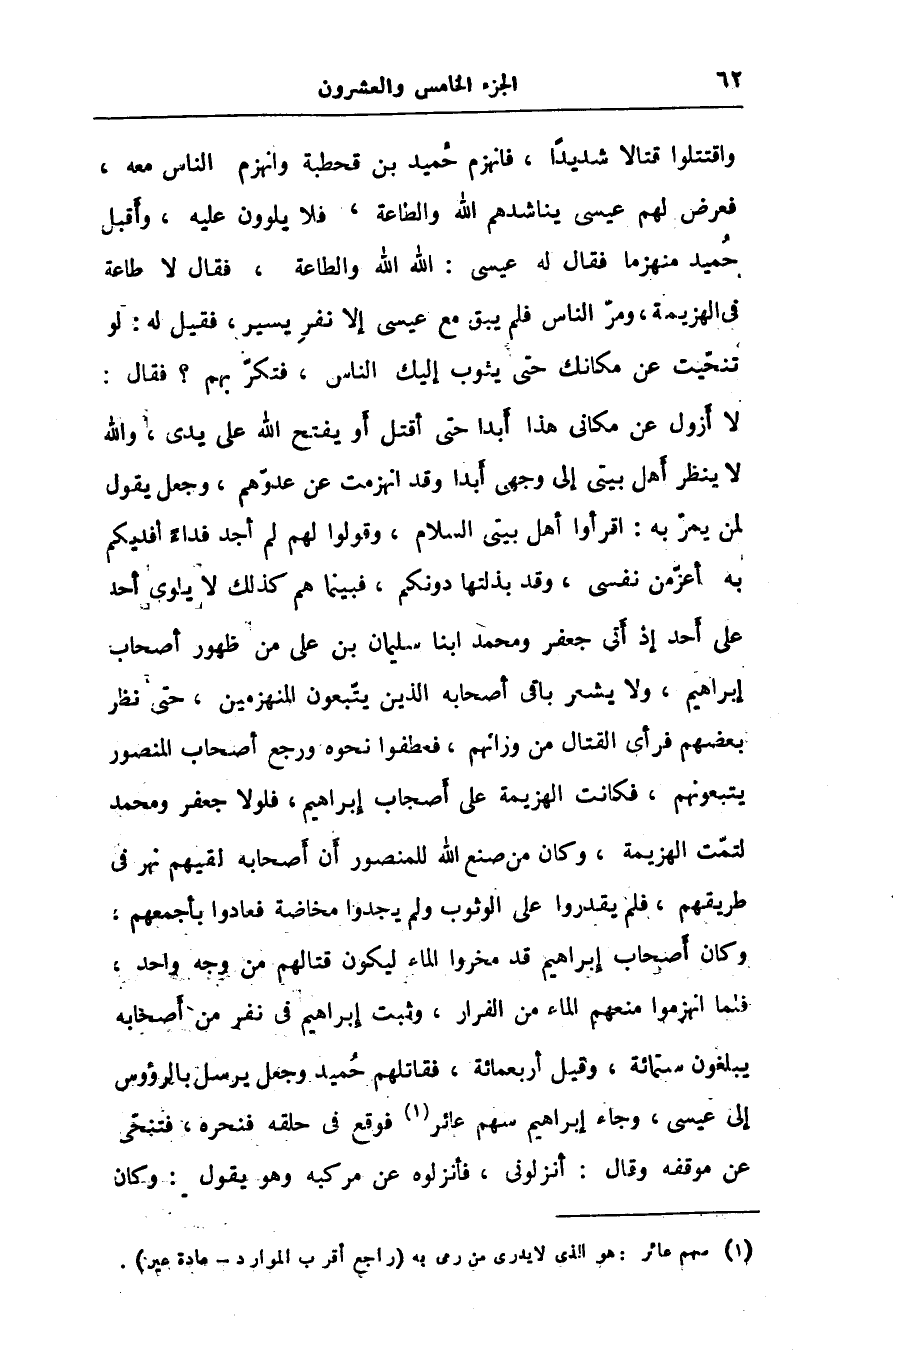 ٦٢
الجزء الخامس والعشرون
واقتتلوا قتالا شديدًا ، فانهزم حُميد بن قحطبة وانهزم الناس معه ،
فعرض لهم عيسى يناشدهم الله والطاعة ، فلا يلوون عليه ، وأقبل
حُميد منهزما فقال له عيسى : الله الله والطاعة ، فقال لا طاعة
فى الهزيمة ، ومرّ الناس فلم يبق مع عيسى إلا نفر يسير ، فقيل له : لو
تنحّيت عن مكانك حتى يثوب إليك الناس ، فتكرّ بهم ؟ فقال :
لا أزول عن مكانى هذا أبدا حتى أقتل أو يفتح الله على يدى ، والله
لا ينظر أهل بيتى إلى وجهى أبدا وقد انهزمت عن عدوّهم ، وجعل يقول
لمن يمرّ به : اقرأوا أهل بيتى السلام ، وقولوا لهم لم أجد فداءً أفديكم
به أعزّ من نفسى ، وقد بذلتها دونكم ، فبينما هم كذلك لا يلوى أحد
على أحد إذ أتى جعفر ومحمد ابنا سليمان بن على من ظهور أصحاب
إبراهيم ، ولا يشعر باقى أصحابه الذين يتّبعون المنهزمين ، حتى نظر
بعضهم فرأى القتال من ورائهم ، فعطفوا نحوه ورجع أصحاب المنصور
يتبعونهم ، فكانت الهزيمة على أصحاب إبراهيم ، فلولا جعفر ومحمد
لتمّت الهزيمة ، وكان من صنع الله للمنصور أن أصحابه لقيهم نهر فى
طريقهم ، فلم يقدروا على الوثوب ولم يجدوا مخاضة فعادوا بأجمعهم ؛
وكان أصحاب إبراهيم قد مخروا الماء ليكون قتالهم من وجه واحد ،
فلما انهزموا منعهم الماء من الفرار ، وثبت إبراهيم فى نفر من أصحابه
يبلغون ستمائة ، وقيل أربعمائة ، فقاتلهم حُميد وجعل يرسل بالرؤوس
إلى عيسى ، وجاء إبراهيم سهم عائر (١) فوقع فى حلقه فنحره ، فتنحّى
عن موقفه وقال : أنزلونى ، فأنزلوه عن مركبه وهو يقول : وكان
(١) سهم عائر : هو الذى لايدرى من رمى به (راجع أقرب الموارد – مادة عير) .